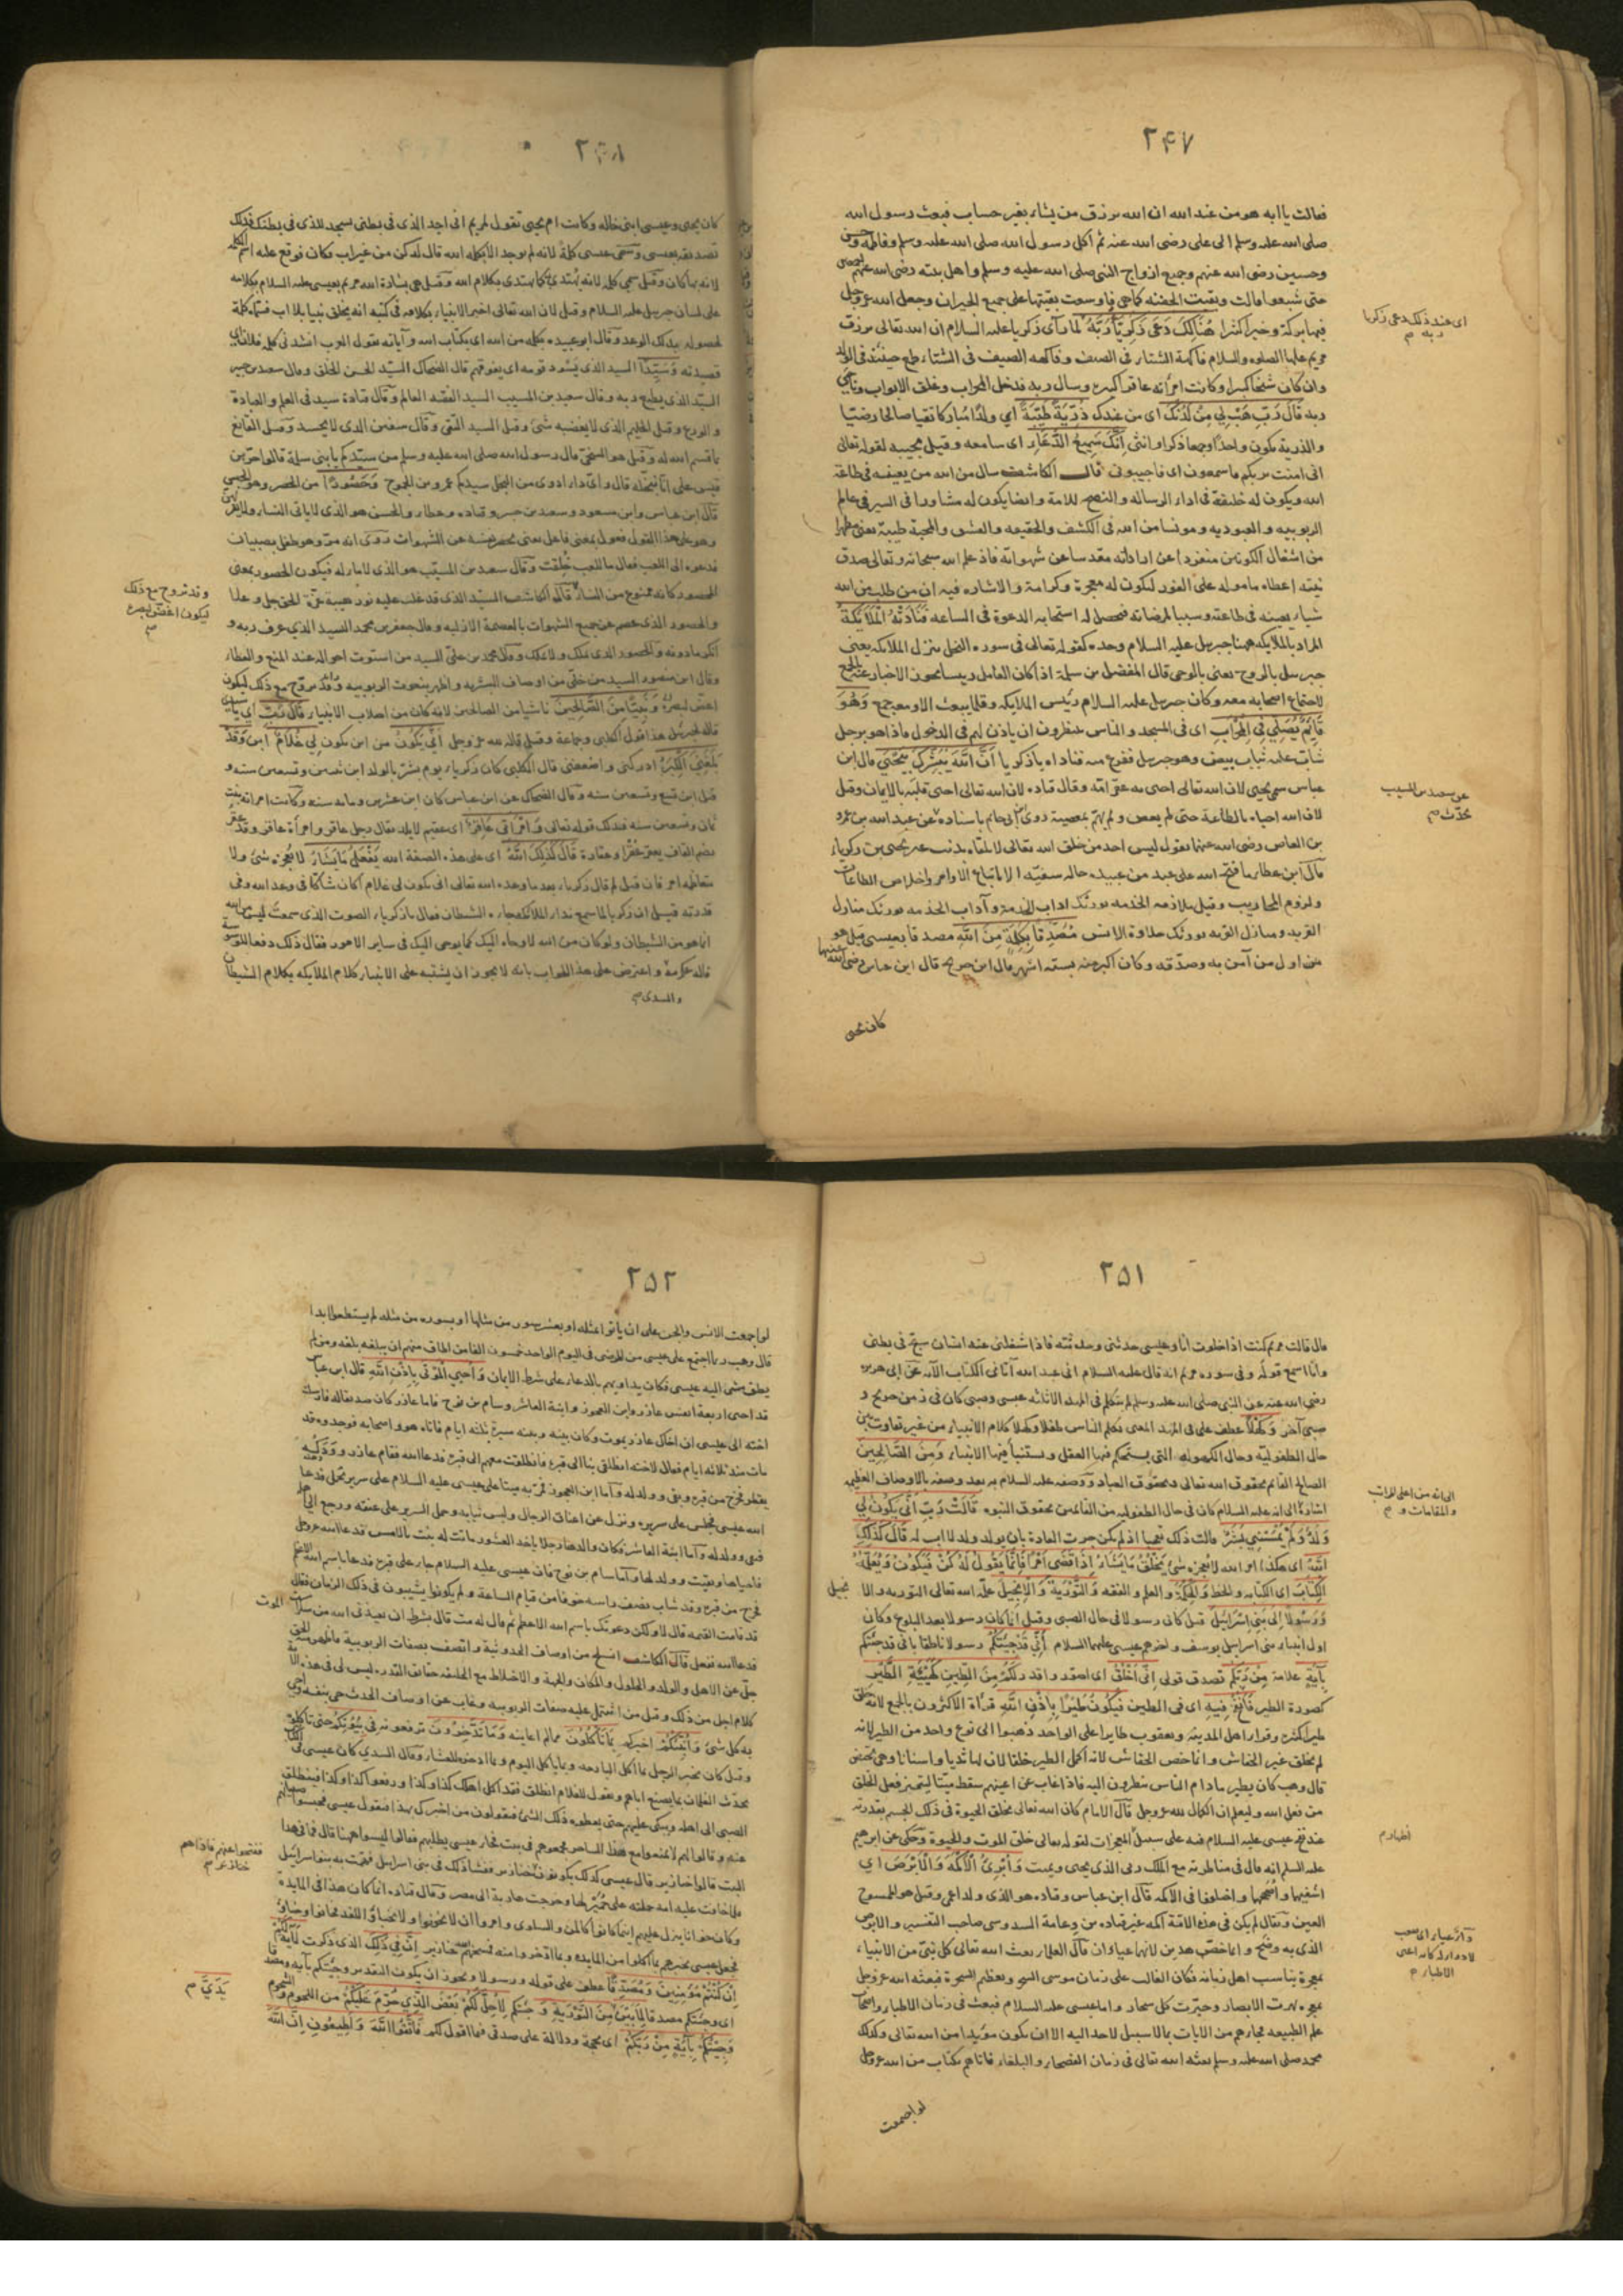 ٢۴٧
فقالت يا ابه هو من عند الله ان الله يرزق من يشاء بغير حساب فبعث رسول الله
صلى الله عليه وسلم الى على رضى الله عنه ثم اكل رسول الله صلى الله عليه وسلم وفاطمة وحسن
وحسين رضى الله عنهم وجميع ازواج النبى صلى الله عليه وسلم واهل بيته رضى الله عنهم
حتى شبعوا قالت وبقيت الجفنة كما هى فاوسعت بقيتها على جميع الجيران وجعل الله عز وجل
فيها بركة وخيرا كثيرا هُنَالِكَ دَعَى زَكَرِيَّا رَبَّهُ لما رأى زكريا عليه السلام ان الله تعالى يرزق
مريم عليها الصلوه والسلام فاكهة الشتاء فى الصيف وفاكهه الصيف فى الشتاء طمع حينئذ فى الولد
وان كان شيخا كبيرا وكانت امرأته عاقرا كبيرة وسال ربه فدخل المحراب وغلق الابواب وناجى
ربه قَالَ رَبِّ هَبْ لِي مِنْ لَدُنْكَ اى من عندك ذُرِّيَّةً طَيِّبَةً اي ولدًا مباركا تقيا صالحا رضيّا
والذرية يكون واحدًا وجمعا ذكرا وانثى اِنَّكَ سَمِيعُ الدُّعَاءِ اى سامعه وقيل مجيبه لقوله تعالى
انى امنت بربكم فاسمعون اى فاجيبون قال الكاشف سال من الله من يعينه فى طاعة
الله ويكون له خليفة فى اداء الرساله والنصح للامة وايضا يكون له مشاورا فى السير فى عالم
الربوبيه والعبوديه ومونسا من الله فى الكشف والحقيقه والعشق والمحبة طيبة يعنى مطهرا
من اشغال الكونين منفردا عن اراداته مقدسا عن شهواته فاذ علم الله سبحانه وتعالى صدق
نيته اعطاه مامولـه على الفور ليكون له معجزة وكرامة والاشاره فيه ان من طلب من الله
شيا يعينه فى طاعته وسببا لمرضاته فحصل له استجابه الدعوة فى الساعه فَنَادَتْهُ الْمَلَائِكَةُ
المراد بالملايكه ههنا جبريل عليه السلام وحده كقوله تعالى فى سورة النحل ينزل الملايكه يعنى
جبريل بالروح يعنى بالوحى قال المفضل بن سلمة اذا كان القايل رئيسا يجوز الاخبار عنه بالجمع
لاجتماع اصحابه معه وكان جبريل عليه السلام رئيس الملايكه وقلما يبعث الا ومعه جمع وَهُوَ
قَائِمٌ يُصَلِّي فِي الْمِحْرَابِ اى فى المسجد والناس ينتظرون ان ياذن لهم فى الدخول فاذا هو برجل
شاب عليه ثياب بيض وهو جبريل ففزع منه فناداه يا زكريا اَنَّ اللّٰهَ يُبَشِّرُكَ بِيَحْيَى قال ابن
عباس سمى يحيى لان الله تعالى احيى به عقر امّه وقال قتاده لان الله تعالى احيى قلبه بالايمان وقيل
لان الله احياه بالطاعة حتى لم يعص ولم يهمّ بمعصية روى ابن ابى حاتم باسناده عن عبد الله بن عمرو
بن العاص رضى الله عنهما يقول ليس احد من خلق الله تعالى لا يلقاه بذنب غير يحيى بن زكرياء
قال ابن عطاء ما فتح الله على عبد من عبيده حاله سنيّه الا باتباع الاوامر واخلاص الطاعات
ولزوم المحاريب وقيل ملازمه الخدمه يورثك اداب الخدمة وآداب الخدمه يورثك منازل
القربه ومنازل القربه يورثك حلاوة الانس مُصَدِّقًا بِكَلِمَةٍ مِنَ اللّٰهِ مصدقا بعيسى قيل هو
من اول من آمن به وصدّقه وكان اكبر منه بستة اشهر قال ابن جريج قال ابن عباس رضى الله عنهما
كان يحيى
اى عند ذلك دعى زكريا
ربه م
عن سعيد بن المسيب
يحدّث م
٢۴٨
كان يحيى وعيسى ابنى خاله وكانت ام يحيى تقول لمريم انى اجد الذى فى بطنى يسجد للذى فى بطنك فذلك
تصديقه بعيسى وسمّى عيسى كلمةً لانه لم يوجد الا بكلمه الله قال له كن من غير اب فكان فوقع عليه اسم الكلمه
لانه بها كان وقيل سمى كلمه لانه يُهتدىٰ به كما يهتدى بكلام الله وقيل هى بشارة الله مريم بعيسى عليه السلام بكلامه
على لسان جبريل عليه السلام وقيل لان الله تعالى اخبر الانبياء بكلامه فى كتبه انه يخلق نبيا بلا اب فسماه كلمة
لحصوله بذلك الوعد وقال ابو عبيده بكلمه من الله اى بكتاب الله وآياته تقول العرب انشدنى كلمة فلان اى
قصيدته وَسَيِّدًا السيد الذى يَسُود قومه اى يفوقهم قال الضحاك السيّد الحسن الخلق وقال سعيد بن جبير
السيّد الذى يطيع ربه وقال سعيد بن المسيب السيد الفقيه العالم وقال قتادة سيد فى العلم والعبادة
والورع وقيل الحليم الذى لا يغضبه شئ وقيل السيد التقى وقال سفين الذى لا يحسد وقيل القانع
بما قسم الله له وقيل هو السخىّ قال رسول الله صلى الله عليه وسلم من سيّدكم يا بنى سلمة قالوا جد بن
قيس على انا نبخّله قال واىّ داء ادوى من البخل سيدكم عمرو بن الجموح وَحَصُورًا من الحصر وهو الحبس
قال ابن عباس وابن مسعود وسعيد بن جبير وقتاده وعطاء والحسن هو الذى لا ياتى النساء ولا يقربهن
وهو على هذا القول فعول بمعنى فاعل يعنى يحصر نفسه عن الشهوات روى انه مرّ وهو طفل بصبيان
فدعوه الى اللعب فقال ما للعب خُلِقت وقال سعيد بن المسيّب هو الذى لا ماء له فيكون الحصور بمعنى
المحصور كانه ممنوع من النساء قال الكاشف السيّد الذى قد غلب عليه نور هيبة عزّة الحق جل وعلا
والحصور الذى عصم عن جميع الشهوات بالعصمة الازليه وقال جعفر بن محمد السيد الذي عرف ربه و
انكر ما دونه والحصور الذى يملك ولا يملك وقال محمد بن على السيد من استوت احواله عند المنع والعطاء
وقال ابن منصور السيد من خلى من اوصاف البشريه واظهر بنعوت الربوبيه وقد تزوّج مع ذلك ليكون
اغضّ لبصره وَنَبِيًّا مِنَ الصَّالِحِينَ ناشيا من الصالحين لانه كان من اصلاب الانبياء قَالَ رَبِّ اى يا سيدى
قاله لجبريل هذا قول الكلبى وجماعة وقيل قاله لله عز وجل اَنَّى يَكُونُ من اين يكون لِي غُلَامٌ ابن وَقَدْ
بَلَغَنِيَ الْكِبَرُ ادركنى واضعفنى قال الكلبى كان زكرياء يوم بشّر بالولد ابن ثنتين وتسعين سنه و
قيل ابن تسع وتسعين سنه وقال الضحاك عن ابن عباس كان ابن عشرين ومايه سنه وكانت امراته بنت
ثمان وتسعين سنه فذلك قوله تعالى وَامْرَاَتِي عَاقِرٌ اى عقيم لا يلد يقال رجل عاقر وامرأة عاقر وقد عقر
بضم القاف يعقر عُقرا وعقارة قَالَ كَذٰلِكَ اللّٰهُ اى على هذه الصفة الله يَفْعَلُ مَا يَشَاءُ لا يُعجزه شئ ولا
يتعاظمه امر فان قيل لم قال زكرياء بعد ما وعده الله تعالى انى يكون لى غلام اكان شاكّا فى وعد الله وفى
قدرته قيـل ان زكريا لما سمع نداء الملائكه جاءه الشيطان فقال يا زكرياء الصوت الذى سمعتَ ليس من الله
انما هو من الشيطان ولو كان من الله لاوحاه اليك كما يوحى اليك فى ساير الامور فقال ذلك دفعا للوسوسة
قاله عكرمة واعترض على هذا الجواب بانه لا يجوز ان يشتبه على الانبياء كلام الملايكه بكلام الشيطان
والسدى م
وقد تزوج مع ذلك
ليكون اغضّ لبصره
م
٢۵١
قال قالت مريم كنت اذا خلوت انا وعيسى حدثنى وحدثته فاذا شغلنى عنه انسان سبّح فى بطنى
وانا اسمع قوله وفى سوره مريم انه قال عليه السلام انى عبد الله آتانى الكتاب الآيه عن ابى هريره
رضى الله عنه عن النبى صلى الله عليه وسلم لم يتكلم فى المهد الا ثلاثه عيسى وصبى كان فى زمن جريج و
صبىّ آخر وَكَهْلًا عطف على فى المهد المعنى ويكلم الناس طفلا وكهلا كلام الانبياء من غير تفاوت بين
حال الطفوليّة وحال الكهوليه التى يستحكم فيها العقل ويستنبأ فيها الانبياء وَمِنَ الصَّالِحِينَ
الصالح القائم بحقوق الله تعالى وبحقوق العباد ووصفه عليه السلام به بعد وصفه بالاوصاف العظيمه
اشارة الى انه عليه السلام كان فى حال الطفوليه من القائمين بحقوق النبوه قَالَتْ رَبِّ اَنَّى يَكُونُ لِي
وَلَدٌ وَلَمْ يَمْسَسْنِي بَشَرٌ قالت ذلك تعجبا اذ لم يكن جرت العادة بان يولد ولد لا اب له قَالَ كَذٰلِكِ
اللّٰهُ اى هكذا امر الله لا يعجزه شئ يَخْلُقُ مَا يَشَاءُ اِذَا قَضَى اَمْرًا فَاِنَّمَا يَقُولُ لَهُ كُنْ فَيَكُونُ وَيُعَلِّمُهُ
الْكِتَابَ اى الكتابه والخط وَالْحِكْمَةَ والعلم والفقه وَالتَّوْرَيةَ وَالْاِنْجِيلَ علّمه الله تعالى التوريه والانجيل
وَرَسُولًا اِلَى بَنِي اِسْرَائِيلَ قيل كان رسولا فى حال الصبى وقيل انما كان رسولا بعد البلوغ وكان
اول انبياء بنى اسرايل يوسف واخرهم عيسى عليهما السلام اَنِّي قَدْ جِئْتُكُمْ رسولا ناطقا بانى قد جئتكم
بِاٰيَةٍ علامة مِنْ رَبِّكُمْ تصدق قولى اِنِّي اَخْلُقُ اى اصور واقدر لَكُمْ مِنَ الطِّينِ كَهَيْئَةِ الطَّيْرِ
كصورة الطير فَاَنْفُخُ فِيهِ اى فى الطين فَيَكُونُ طَيْرًا بِاِذْنِ اللّٰهِ قرأة الاكثرون بالجمع لانه خلق
طيرا كثيره وقرأ اهل المدينة ويعقوب طايرا على الواحد ذهبوا الى نوع واحد من الطير لانه
لم يخلق غير الخفاش وانما خص الخفاش لانه اكمل الطير خلقا لان لها ثديا واسنانا وهى تحيض
قال وهب كان يطير ما دام الناس ينظرون اليه فاذا غاب عن اعينهم سقط ميتا ليتميز فعل الخلق
من فعل الله وليعلم ان الكمال لله عز وجل قال الامام كان الله تعالى يخلق الحيوة فى ذلك الجسم بقدرته
عند نفخ عيسى عليه السلام فيه على سبيل المعجزات لقوله تعالى خلق الموت والحيوة وحكى عن ابرهيم
عليه السلم انه قال فى مناظرته مع الملك ربى الذى يحيى ويميت وَاُبْرِئُ الْاَكْمَهَ وَالْاَبْرَصَ اى
اشفيهما واُصَحّحهما واختلفوا فى الاكمه قال ابن عباس وقتاده هو الذى ولد اعمى وقيل هو الممسوح
العين ويقال لم يكن فى هذه الامّة اكمه غير قتاده بن دعامة السدوسى صاحب التفسير والابرص
الذى به وضح وانما خصّ هذين لانهما عياءان قال العلماء بعث الله تعالى كل نبىّ من الانبياء
بمعجزة يناسب اهل زمانه فكان الغالب على زمان موسى السحر وتعظيم السحرة فبعثه الله عز وجل
بمعجزة بهرت الابصار وحيّرت كل سحار واما عيسى عليه السلام فبعث فى زمان الاطباء واصحاب
علم الطبيعه فجاءهم من الايات بما لا سبيل لاحد اليه الا ان يكون مؤيدا من الله تعالى وكذلك
محمد صلى الله عليه وسلم بعثه الله تعالى فى زمان الفصحاء والبلغاء فاتاهم بكتاب من الله عز وجل
لو اجتمعت
الى انه من اعلى المراتب
والمقامات م
اظهار م
٢۵٢
لو اجمعت الانس والجن على ان ياتوا بمثله او بعشر سور من مثلها او بسوره من مثله لم يستطعوا ابدا
قال وهب ربما اجتمع على عيسى من المرضى فى اليوم الواحد خمسون الفا من اطاق منهم ان يبلغه بلغه ومن لم
يطق مشى اليه عيسى فكان يداويهم بالدعاء على شرط الايمان وَاُحْيِي الْمَوْتَى بِاِذْنِ اللّٰهِ قال ابن عباس
قد احيى اربعة انفس عازر وابن العجوز وابنة العاشر وسام بن نوح فاما عازر كان صديقا له فارسلت
اخته الى عيسى ان اخاك عازر يموت وكان بينه وبينه مسيرة ثلثه ايام فاتاه هو واصحابه فوجدوه قد
مات منذ ثلاثه ايام فقال لاخته انطلقى بنا الى قبره فانطلقت معهم الى قبره فدعا الله فقام عازر وودكه
يقطر فخرج من قبره وبقى وولد له واما ابن العجوز فمرّ به ميتا على عيسى عليه السلام على سرير يحمل فدعا
الله عيسى فجلس على سريره ونزل عن اعناق الرجال ولبس ثيابه وحمل السرير على عنقه ورجع الى اهله
فبقى وولد له واما ابنة العاشر فكان والدها رجلا ياخذ العشور ماتت له بنت بالامس فدعا الله عز وجل
فاحياها وبقيت وولد لها واما سام بن نوح فان عيسى عليه السلام جاء على قبره فدعا باسم الله الاعظم
فخرج من قبره وقد شاب نصف راسه خوفا من قيام الساعة ولم يكونوا يشيبون فى ذلك الزمان فقال
قد قامت القيمه قال لا ولكن دعوتك باسم الله الاعظم ثم قال له مت قال بشرط ان يعيذنى الله من سكرات الموت
فدعا الله ففعل قال الكاشف انسلخ من اوصاف الحدوثية واتصف بصفات الربوبية
جلّ عن الاهل والولد والحلول والمكان والجهة والاختلاط مع الخليقه حقايق القدره ليس لى فى هذه الا
كلام اجل من ذلك وقيل من اشتمل عليه صفات الربوبيه وغاب عن اوصاف الحدث حيى بنفسه واحيى
به كل شئ وَاُنَبِّئُكُمْ اخبركم بِمَا تَاْكُلُونَ مما لم اعاينه وَمَا تَدَّخِرُونَ ترفعونه فى بُيُوتِكُمْ حتى تاكلوه
وقيل كان يخبر الرجل بما اكل البارحه وبما ياكل اليوم وبما ادخره للعشاء وقال السدى كان عيسى فى الكتاب
يحدّث الغلمان بما يصنع اباؤهم ويقول للغلام انطلق فقد اكل اهلك كذا وكذا ورفعوا كذا وكذا فينطلق
الصبى الى اهله ويبكى عليهم حتى يعطوه ذلك الشئ فيقولون من اخبرك بهذا فيقول عيسى فحبسوا صبيانهم
عنه وقالوا لهم لا تلعبوا مع هذا الساحر فجمعوهم فى بيت فجاء عيسى يطلبهم فقالوا ليسوا ههنا قال فما فى هذا
البيت قالوا خنازير قال عيسى كذلك يكونون خنازير ففشا ذلك فى بنى اسرايل فهمّت به بنو اسرائيل
فلما خافت عليه امه حملته على حُمَيِّرٍ لها وخرجت هاربة الى مصر وقال قتاده انما كان هذا فى المايدة
وكان خوانا ينزل عليهم اينما كانوا كالمن والسلوى وامروا ان لا يخونوا ولا يخبؤا للغد فخانوا وخبأوا
فجعل عيسى يخبرهم بما اكلوا من المايده وبما ادخروا منه فمسخهم الله خنازير اِنَّ فِي ذٰلِكَ الذى ذكرت لَاٰيَةً لَكُمْ
اِنْ كُنْتُمْ مُؤْمِنِينَ وَمُصَدِّقًا عطف على قوله ورسولا ويجوز ان يكون التقدير وجئتكم بآية ومصدقا
اى وجئتكم مصدقا لِمَا بَيْنَ مِنَ التَّوْرَيةِ وَجئتكم لِاُحِلَّ لَكُمْ بَعْضَ الَّذِي حُرِّمَ عَلَيْكُمْ من اللحوم والشحوم
وَجِئْتُكُمْ بِاٰيَةٍ مِنْ رَبِّكُمْ اى بحجة ودلالة على صدقى فيما اقول لكم فَاتَّقُوا اللّٰهَ وَاَطِيعُونِ اِنَّ اللّٰهَ
ففتحوا عنهم فاذا هم
خنازير م
يَدَيَّ م